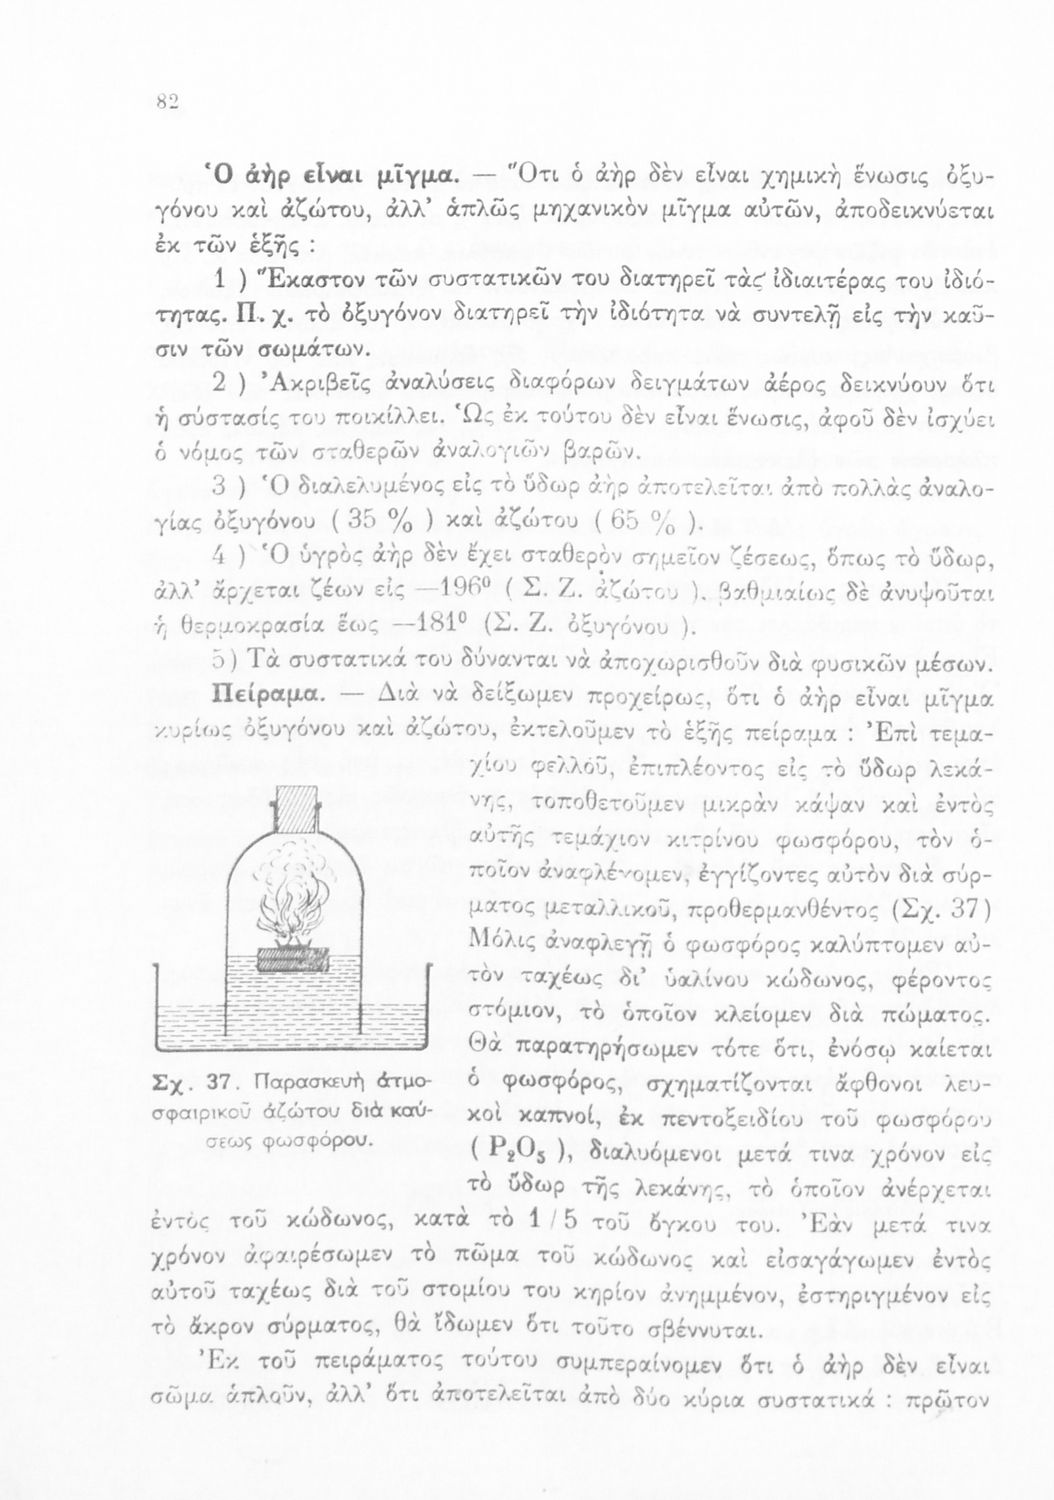 82
Ὁ ἀὴρ εἶναι μῖγμα. — Ὅτι ὁ ἀὴρ δὲν εἶναι χημικὴ ἕνωσις ὀξυ-
γόνου καὶ ἀζώτου, ἀλλ’ ἁπλῶς μηχανικὸν μῖγμα αὐτῶν, ἀποδεικνύεται
ἐκ τῶν ἑξῆς :
1 ) Ἕκαστον τῶν συστατικῶν του διατηρεῖ τὰς ἰδιαιτέρας του ἰδιό-
τητας. Π. χ. τὸ ὀξυγόνον διατηρεῖ τὴν ἰδιότητα νὰ συντελῇ εἰς τὴν καῦ-
σιν τῶν σωμάτων.
2 ) Ἀκριβεῖς ἀναλύσεις διαφόρων δειγμάτων ἀέρος δεικνύουν ὅτι
ἡ σύστασίς του ποικίλλει. Ὡς ἐκ τούτου δὲν εἶναι ἕνωσις, ἀφοῦ δὲν ἰσχύει
ὁ νόμος τῶν σταθερῶν ἀναλογιῶν βαρῶν.
3 ) Ὁ διαλελυμένος εἰς τὸ ὕδωρ ἀὴρ ἀποτελεῖται ἀπὸ πολλὰς ἀναλο-
γίας ὀξυγόνου ( 35 % ) καὶ ἀζώτου ( 65 % ).
4 ) Ὁ ὑγρὸς ἀὴρ δὲν ἔχει σταθερὸν σημεῖον ζέσεως, ὅπως τὸ ὕδωρ,
ἀλλ’ ἄρχεται ζέων εἰς —196⁰ ( Σ. Ζ. ἀζώτου ), βαθμιαίως δὲ ἀνυψοῦται
ἡ θερμοκρασία ἕως —181⁰ (Σ. Ζ. ὀξυγόνου ).
5) Τὰ συστατικά του δύνανται νὰ ἀποχωρισθοῦν διὰ φυσικῶν μέσων.
Πείραμα. — Διὰ νὰ δείξωμεν προχείρως, ὅτι ὁ ἀὴρ εἶναι μῖγμα
κυρίως ὀξυγόνου καὶ ἀζώτου, ἐκτελοῦμεν τὸ ἑξῆς πείραμα : Ἐπὶ τεμα-
χίου φελλοῦ, ἐπιπλέοντος εἰς τὸ ὕδωρ λεκά-
νης, τοποθετοῦμεν μικρὰν κάψαν καὶ ἐντὸς
αὐτῆς τεμάχιον κιτρίνου φωσφόρου, τὸν ὁ-
ποῖον ἀναφλέγομεν, ἐγγίζοντες αὐτὸν διὰ σύρ-
ματος μεταλλικοῦ, προθερμανθέντος (Σχ. 37)
Μόλις ἀναφλεγῇ ὁ φωσφόρος καλύπτομεν αὐ-
τὸν ταχέως δι’ ὑαλίνου κώδωνος, φέροντος
στόμιον, τὸ ὁποῖον κλείομεν διὰ πώματος.
Θὰ παρατηρήσωμεν τότε ὅτι, ἐνόσῳ καίεται
ὁ φωσφόρος, σχηματίζονται ἄφθονοι λευ-
κοὶ καπνοί, ἐκ πεντοξειδίου τοῦ φωσφόρου
( P₂O₅ ), διαλυόμενοι μετά τινα χρόνον εἰς
τὸ ὕδωρ τῆς λεκάνης, τὸ ὁποῖον ἀνέρχεται
Σχ. 37. Παρασκευὴ ἀτμο-
σφαιρικοῦ ἀζώτου διὰ καύ-
σεως φωσφόρου.
ἐντὸς τοῦ κώδωνος, κατὰ τὸ 1 / 5 τοῦ ὄγκου του. Ἐὰν μετά τινα
χρόνον ἀφαιρέσωμεν τὸ πῶμα τοῦ κώδωνος καὶ εἰσαγάγωμεν ἐντὸς
αὐτοῦ ταχέως διὰ τοῦ στομίου του κηρίον ἀνημμένον, ἐστηριγμένον εἰς
τὸ ἄκρον σύρματος, θὰ ἴδωμεν ὅτι τοῦτο σβέννυται.
Ἐκ τοῦ πειράματος τούτου συμπεραίνομεν ὅτι ὁ ἀὴρ δὲν εἶναι
σῶμα ἁπλοῦν, ἀλλ’ ὅτι ἀποτελεῖται ἀπὸ δύο κύρια συστατικά : πρῶτον